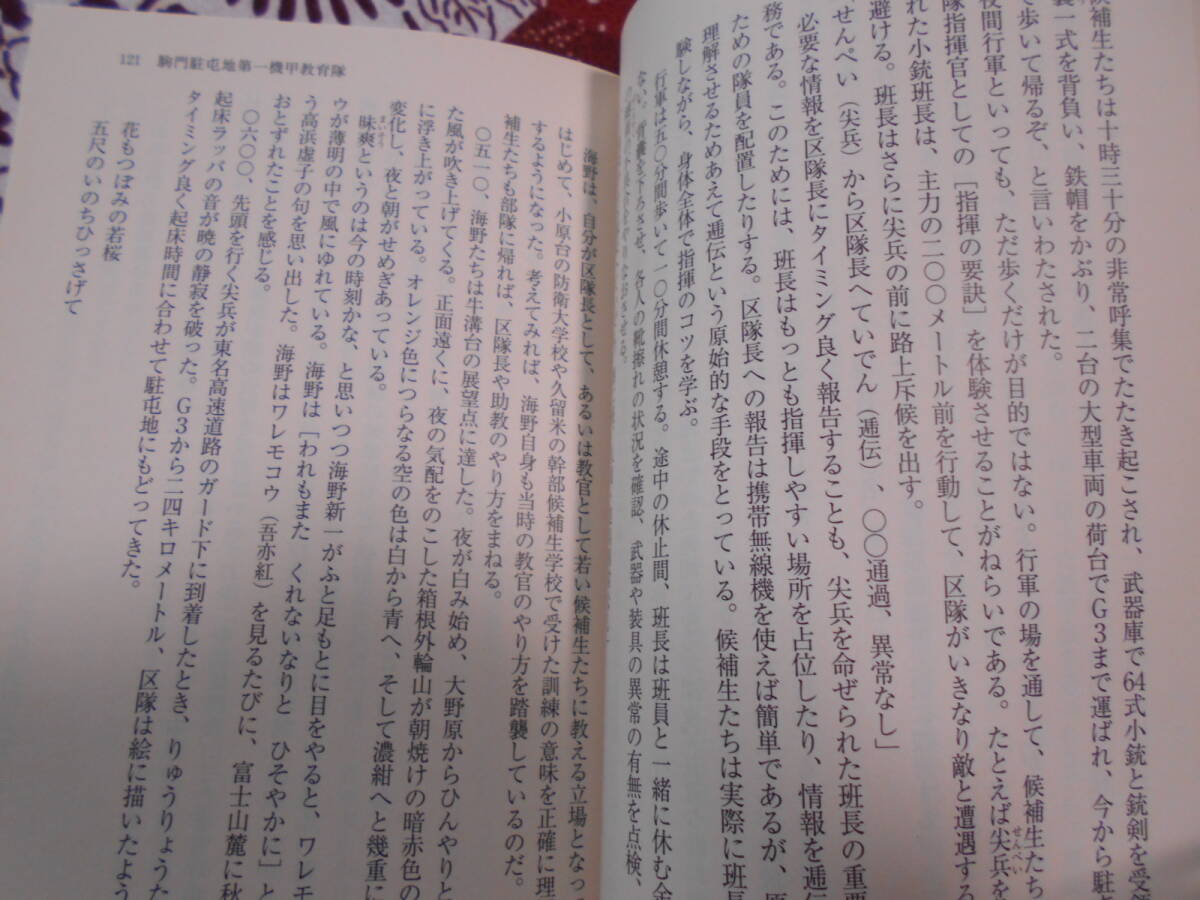 候補生たちは十時三十分の非常呼集でたたき起こされ、武器庫で64式小銃と銃剣を受領
一式を背負い、鉄帽をかぶり、二台の大型車両の荷台でG3まで運ばれ、今から駐
で歩いて帰るぞ、と言いわたされた。
夜間行軍といっても、ただ歩くだけが目的ではない。行軍の場を通して、候補生たち
隊指揮官としての［指揮の要訣］を体験させることがねらいである。たとえば尖兵を
せんぺい
れた小銃班長は、主力の二〇〇メートル前を行動して、区隊がいきなり敵と遭遇する
避ける。班長はさらに尖兵の前に路上斥候を出す。
せんぺい（尖兵）から区隊長へていでん（逓伝）、〇〇通過、異常なし」
必要な情報を区隊長にタイミング良く報告することも、尖兵を命ぜられた班長の重要
務である。このためには、班長はもっとも指揮しやすい場所を占位したり、情報を逓伝
ための隊員を配置したりする。区隊長への報告は携帯無線機を使えば簡単であるが、
理解させるためあえて逓伝という原始的な手段をとっている。候補生たちは実際に班長
験しながら、身体全体で指揮のコツを学ぶ。
行軍は五〇分間歩いて一〇分間休憩する。途中の休止間、班長は班員と一緒に休む
ない。背嚢を下ろさせ、各人の靴擦れの状況を確認、武器や装具の異常の有無を点検、
なおさせる。
121 駒門駐屯地第一機甲教育隊
海野は、自分が区隊長として、あるいは教官として若い候補生たちに教える立場となっ
はじめて、小原台の防衛大学校や久留米の幹部候補生学校で受けた訓練の意味を正確に理
するようになった。考えてみれば、海野自身も当時の教官のやり方を踏襲しているのだ。
補生たちも部隊に帰れば、区隊長や助教のやり方をまねる。
〇五一〇、海野たちは牛溝台の展望点に達した。夜が白み始め、大野原からひんやりと
た風が吹き上げてくる。正面遠くに、夜の気配をのこした箱根外輪山が朝焼けの暗赤色の
に浮き上がっている。オレンジ色につらなる空の色は白から青へ、そして濃紺へと幾重に
変化し、夜と朝がせめぎあっている。
まいそう
昧爽というのは今の時刻かな、と思いつつ海野新一がふと足もとに目をやると、ワレモ
ウが薄明の中で風にゆれている。海野は［われもまた　くれないなりと　ひそやかに］と
う高浜虚子の句を思い出した。海野はワレモコウ（吾亦紅）を見るたびに、富士山麓に秋
おとずれたことを感じる。
〇六〇〇、先頭を行く尖兵が東名高速道路のガード下に到着したとき、りゅうりょうた
起床ラッパの音が暁の静寂を破った。G3から二四キロメートル、区隊は絵に描いたよう
タイミング良く起床時間に合わせて駐屯地にもどってきた。
花もつぼみの若桜
五尺のいのちひっさげて